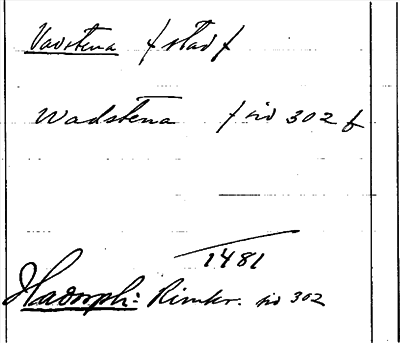 Vadstena / stad /
Wadstena / sid 302 b
1481
Hadorph: Rimkr. sid 302